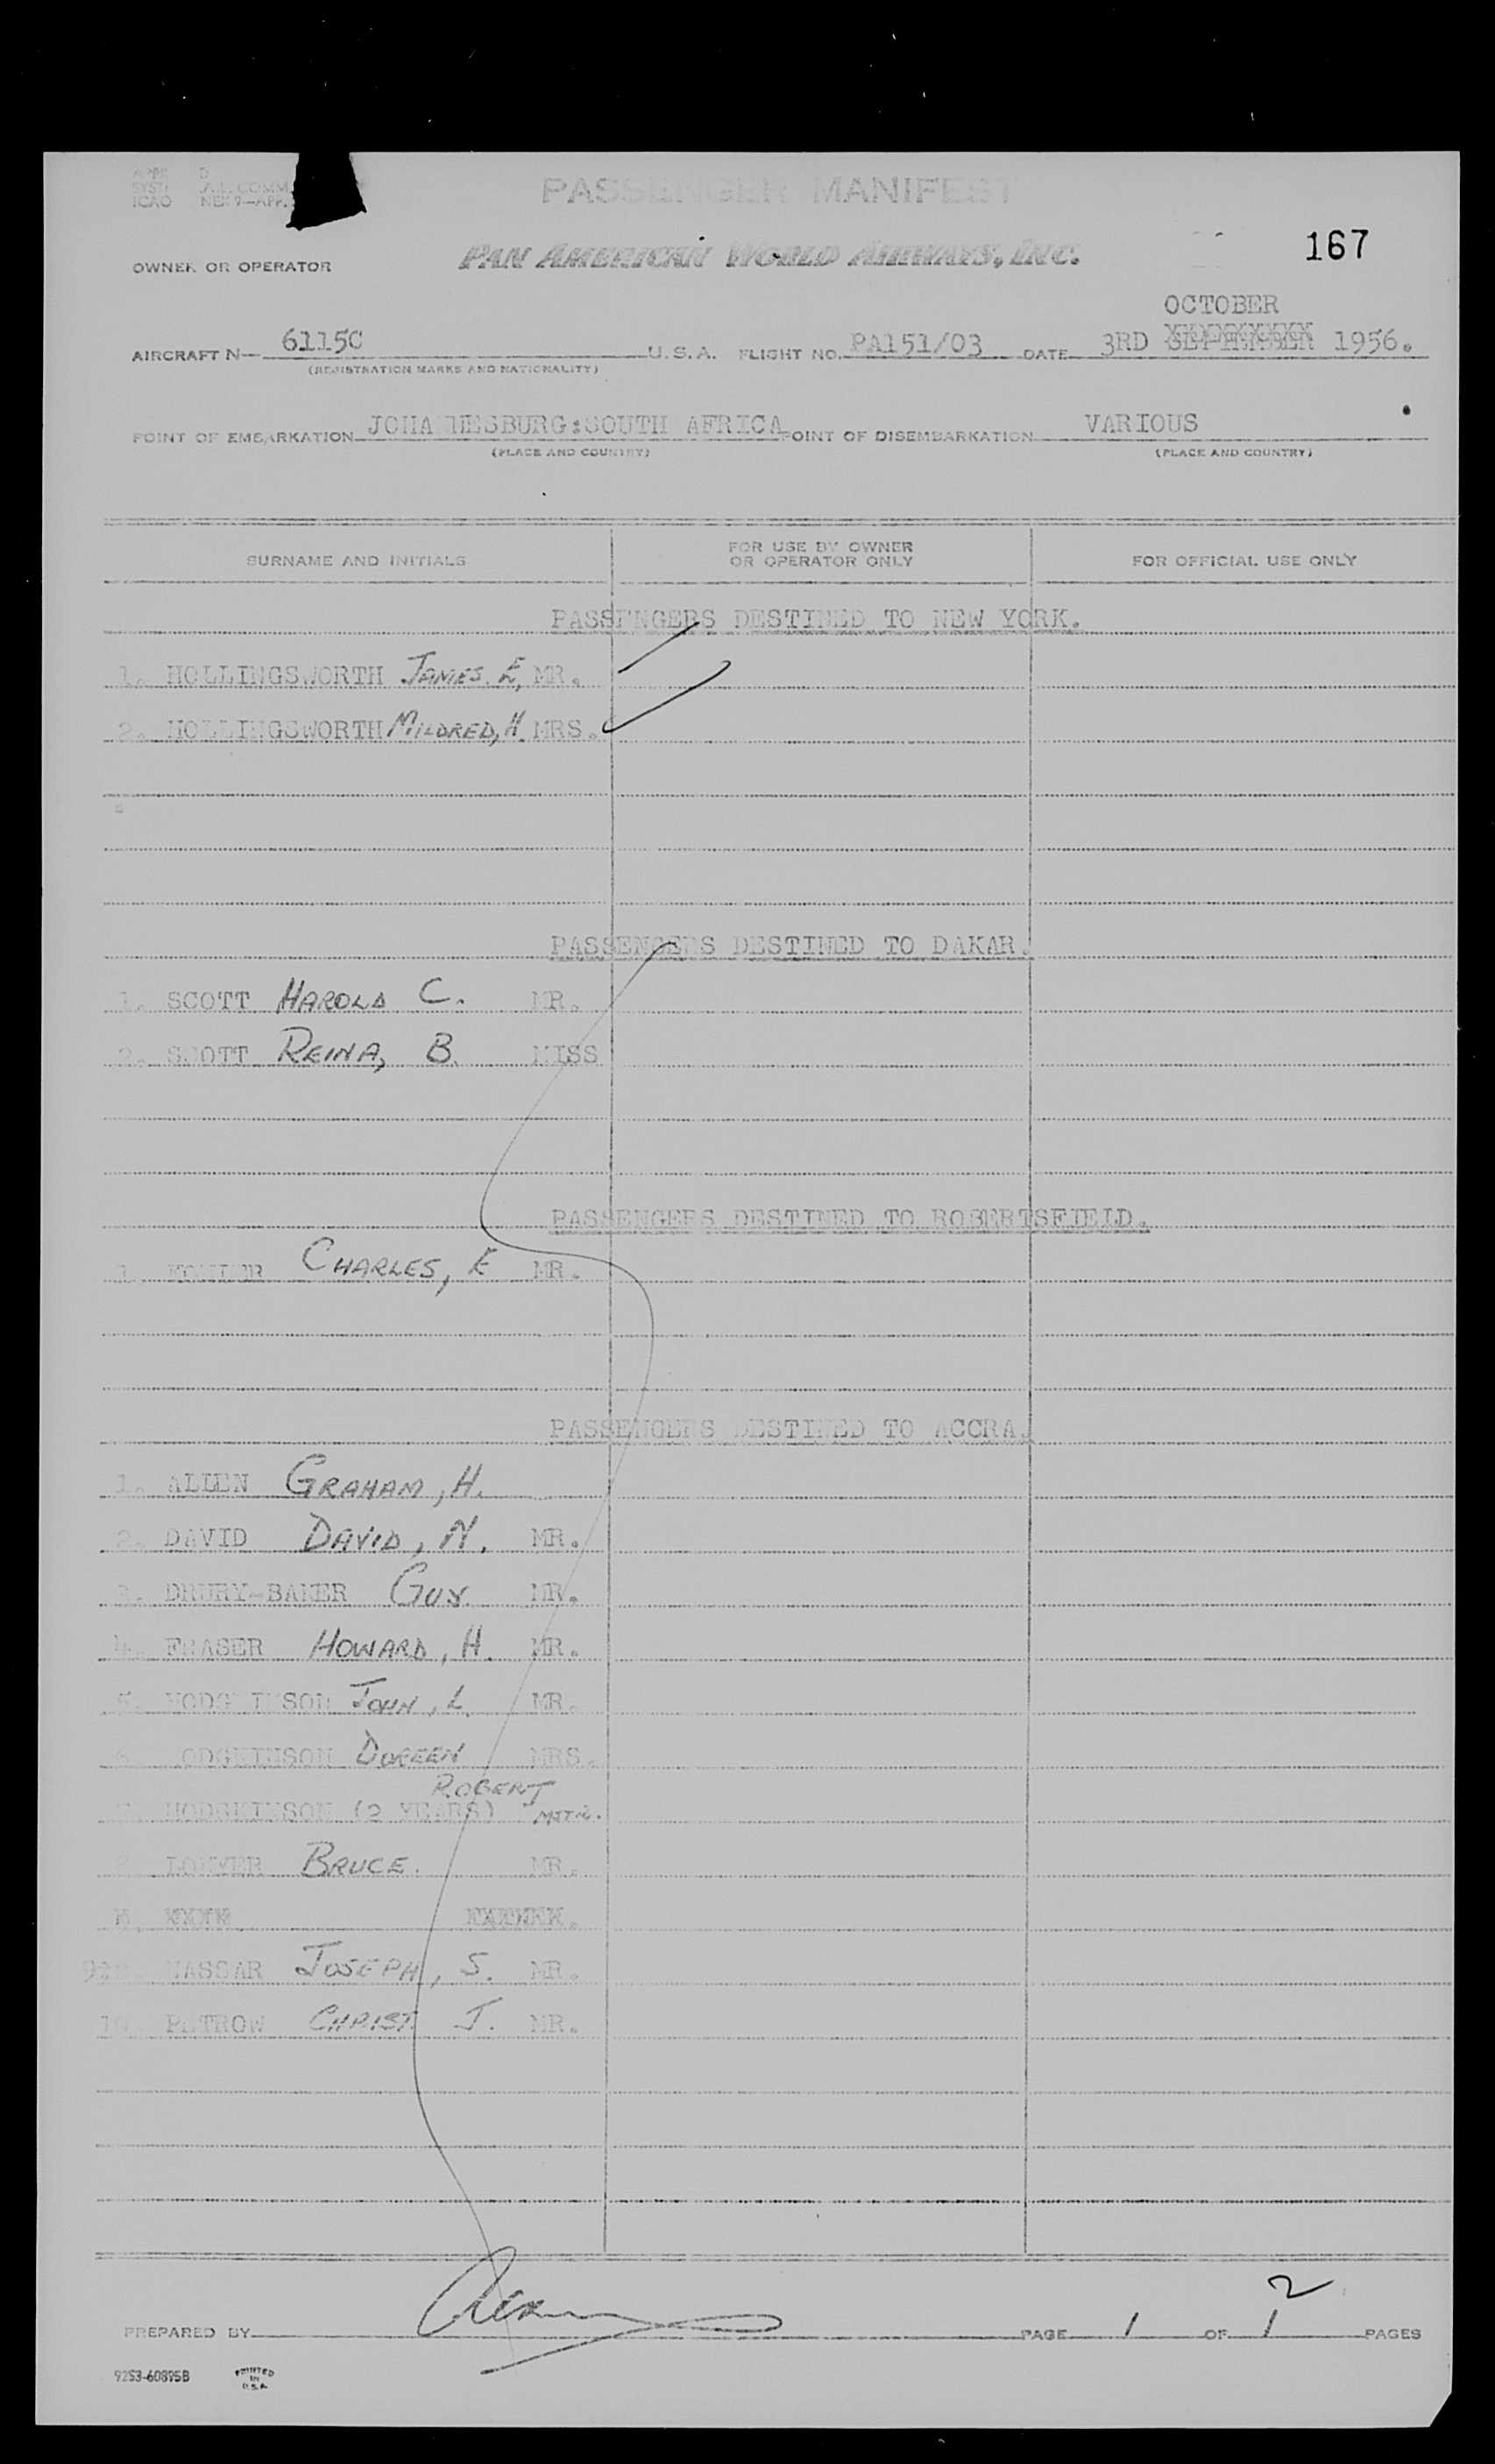 PASSENGER MANIFEST
167
OWNER OR OPERATOR PAN AMERICAN WORLD AIRWAYS, INC.
OCTOBER
AIRCRAFT N— 6115C U.S.A. FLIGHT NO. PA151/03 DATE 3RD SEPTEMBER 1956.
(REGISTRATION MARKS AND NATIONALITY)
POINT OF EMBARKATION JOHA NESBURG:SOUTH AFRICA POINT OF DISEMBARKATION VARIOUS
(PLACE AND COUNTRY) (PLACE AND COUNTRY)
SURNAME AND INITIALS FOR USE BY OWNER OR OPERATOR ONLY FOR OFFICIAL USE ONLY
PASSENGERS DESTINED TO NEW YORK.
1. HOLLINGSWORTH JAMES. E, MR.
2. HOLLINGSWORTH MILDRED, H. MRS.
PASSENGERS DESTINED TO DAKAR.
1. SCOTT HAROLD C. MR.
2. SCOTT REINA, B. MISS
PASSENGERS DESTINED TO ROBERTSFIELD.
1. CHARLES, E MR.
PASSENGERS DESTINED TO ACCRA.
1. ALLEN GRAHAM, H.
2. DAVID DAVID, N. MR.
3. DRURY-BAKER GUY MR.
4. FRASER HOWARD, H. MR.
5. HODGKINSON JOHN, L. MR.
6. HODGKINSON DOREEN MRS.
ROBERT
7. HODGKINSON (2 YEARS) MSTR.
8. BRUCE. MR.
9. NASSAR JOSEPH, S. MR.
10. PETROW CHRIST J. MR.
2
PREPARED BY PAGE 1 OF 1 PAGES
9253-60895B PRINTED IN U.S.A.